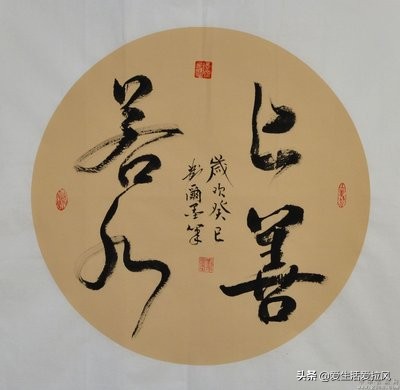 上善
若水
歲次癸巳
爾墨筆
头条 @爱生活爱拉风